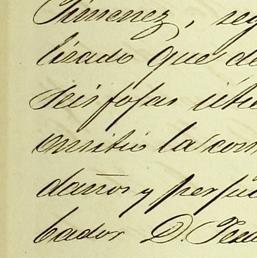 Jimenez, seg
lizado que de
seis fojas útil
emitió la com
daños y perjui
bador D. Fer